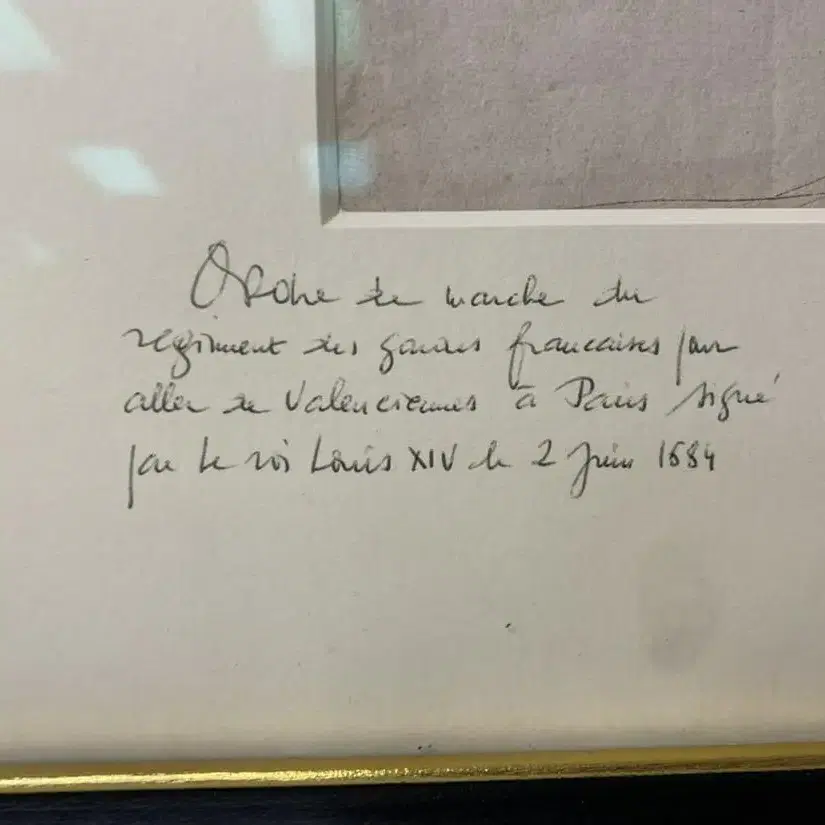 Ordre de marche du
regiment des gardes francaises pour
aller de Valenciennes à Paris signé
par le roi Louis XIV le 2 Juin 1684